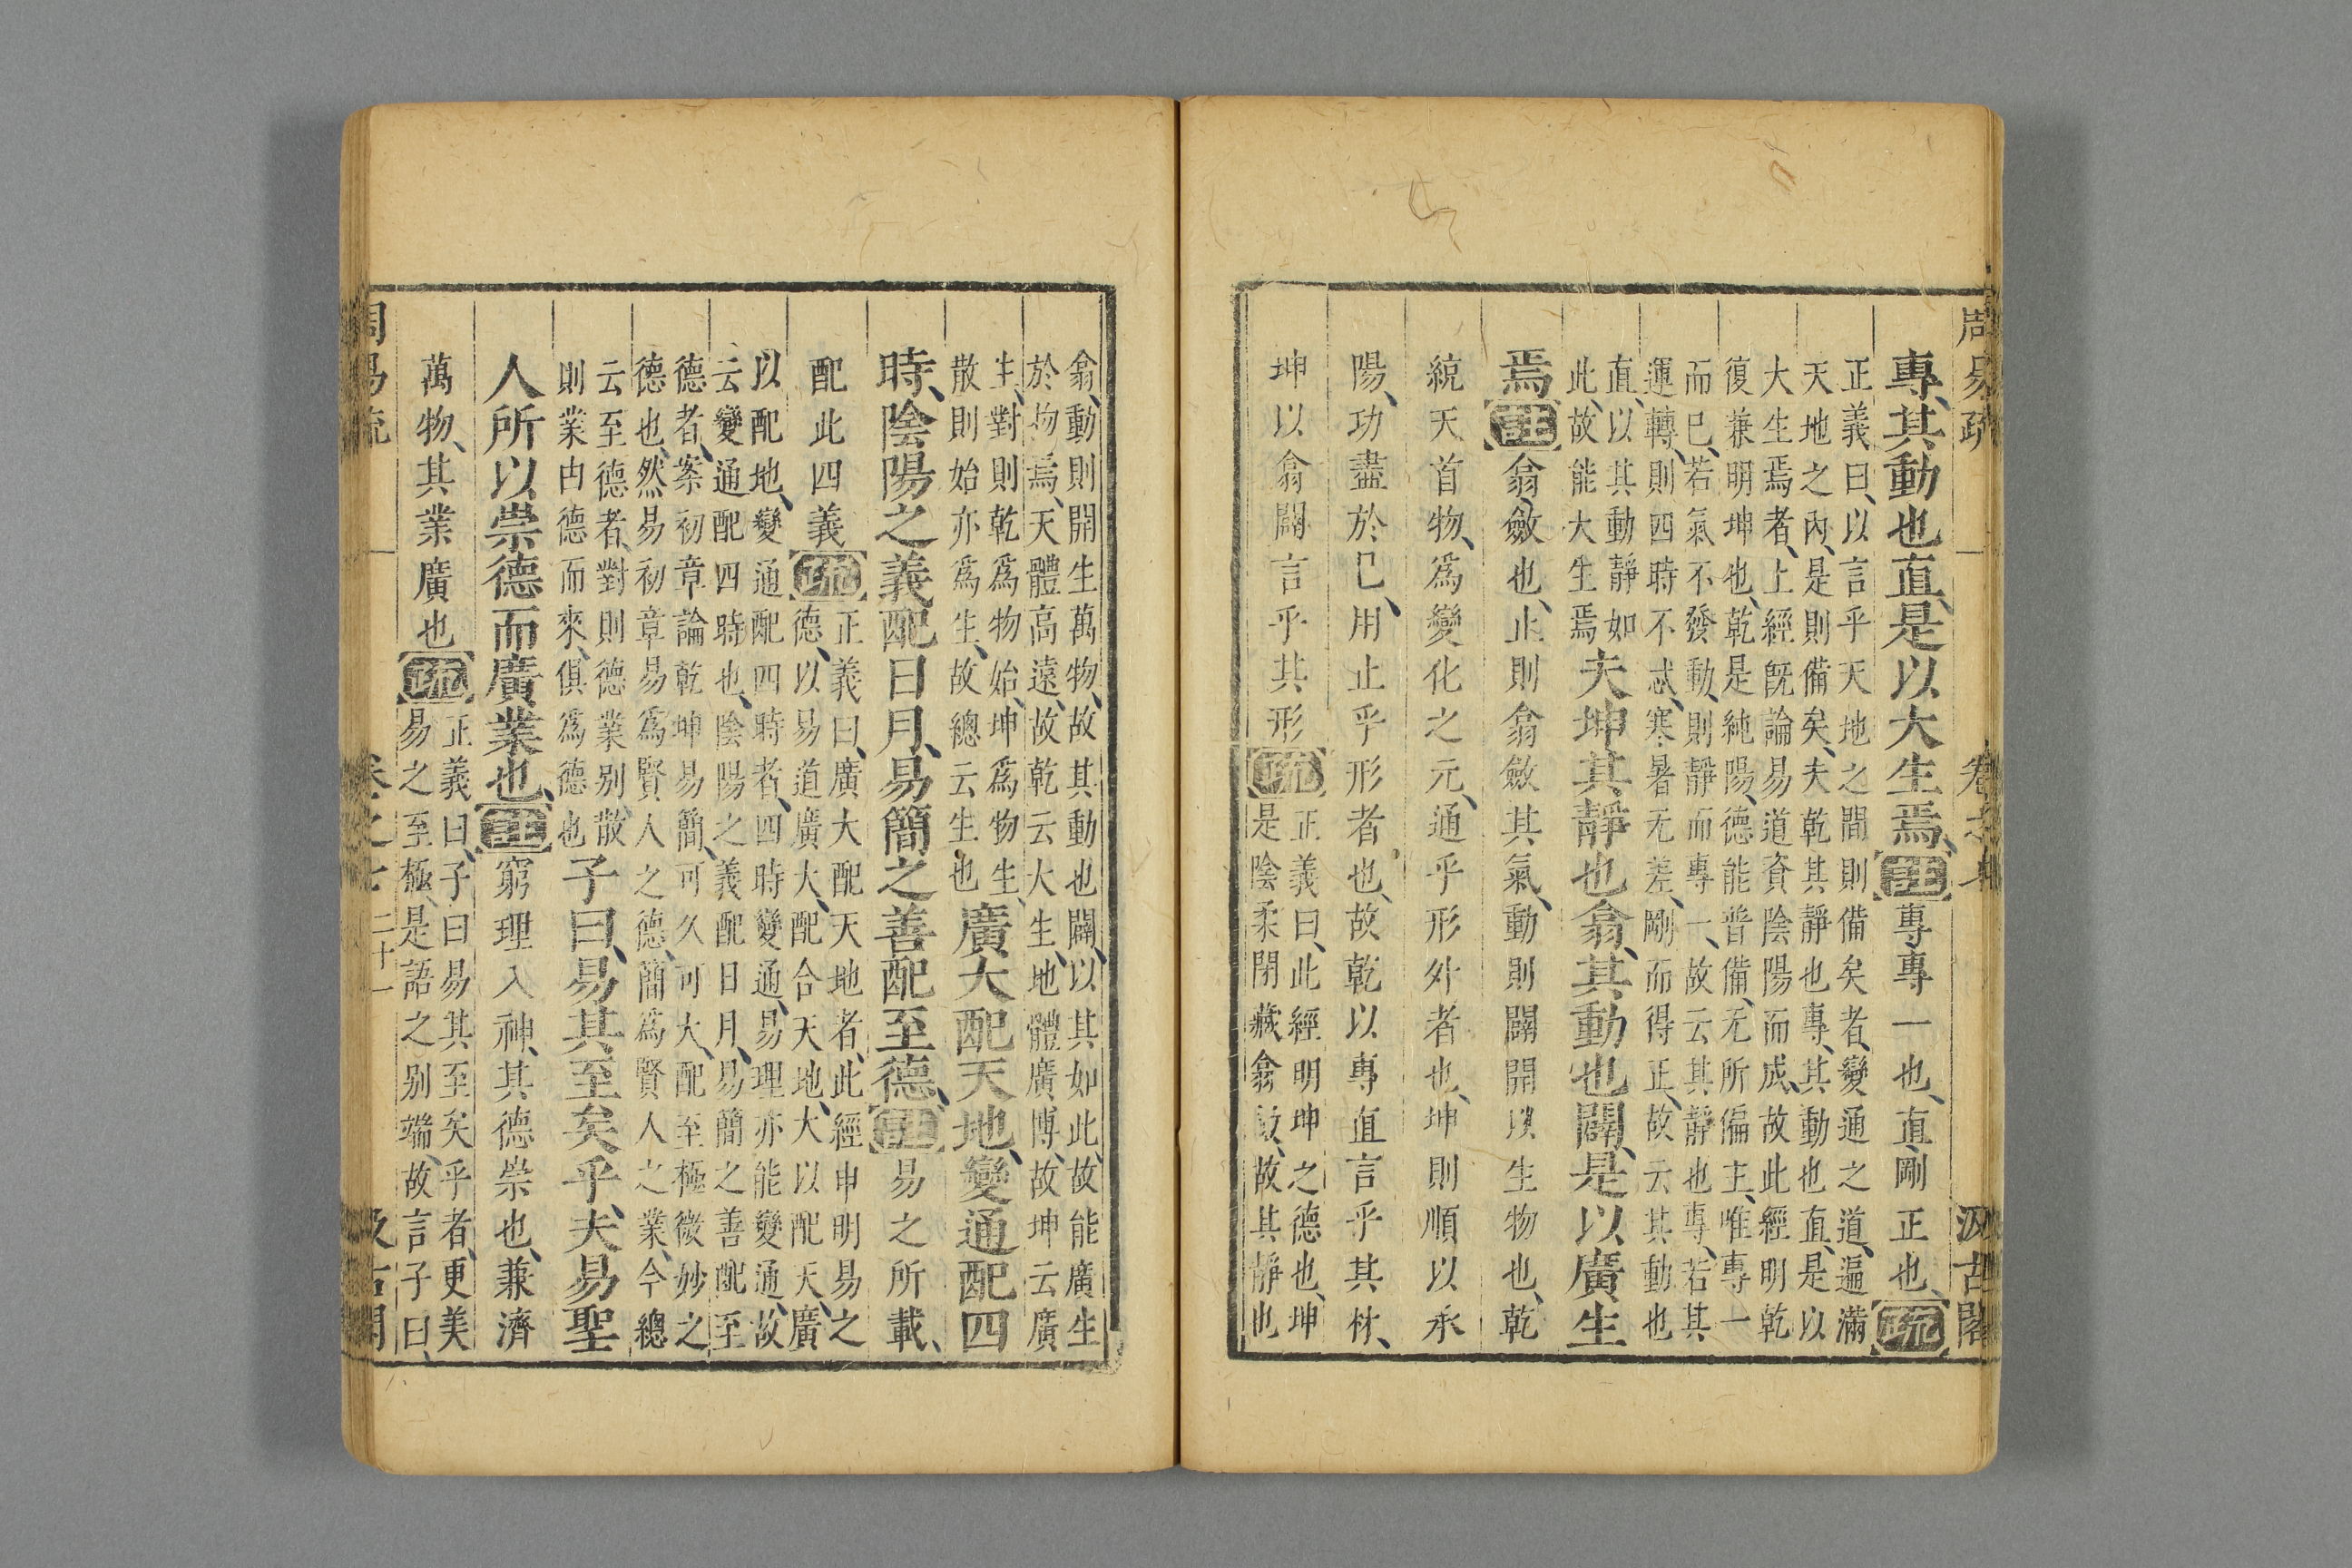 周易疏 卷之七 汲古閣
專、其動也直、是以大生焉、註專專一也、直、剛正也、疏
正義曰、以言乎天地之間則備矣者、變通之道、遍滿
天地之內、是則備矣、夫乾其靜也專、其動也直、是以
大生焉者、上經旣論易道資陰陽而成、故此經明乾
復兼明坤也、乾是純陽、德能普備、无所偏主、唯專一
而已、若氣不發動、則靜而專一、故云其靜也專、若其
運轉、則四時不忒、寒暑无差、剛而得正、故云其動也
直、以其動靜如
此、故能大生焉
夫坤其靜也翕、其動也闢、是以廣生
焉註翕、斂也、止則翕斂其氣、動則闢開以生物也、乾
統天首物、爲變化之元、通乎形外者也、坤則順以承
陽、功盡於已、用止乎形者也、故乾以專直言乎其材、
坤以翕闢言乎其形疏
正義曰、此經明坤之德也、坤
是陰柔閉藏翕斂、故其靜也
翕、動則開生萬物、故其動也闢、以其如此、故能廣生
於物焉、天體高遠、故乾云大生、地體廣博、故坤云廣
生、對則乾爲物始、坤爲物生、
散則始亦爲生、故總云生也
廣大配天地、變通配四
時、陰陽之義配日月、易簡之善配至德、註易之所載、
配此四義疏
正義曰、廣大配天地者、此經申明易之
德、以易道廣大、配合天地、大以配天、廣
以配地、變通配四時者、四時變通、易理亦能變通、故
云變通配四時也、陰陽之義配日月、易簡之善配至
德者、案初章論乾坤易簡、可久可大、配至極微妙之
德也、然易初章易爲賢人之德、簡爲賢人之業、今總
云至德者、對則德業别、散
則業由德而來、俱爲德也
子曰、易其至矣乎、夫易聖
人所以崇德而廣業也、註窮理入神、其德崇也、兼濟
萬物、其業廣也疏
正義曰、子曰易其至矣乎者、更美
易之至極、是語之别端、故言子曰、
周易疏 卷之七 二十一 汲古閣